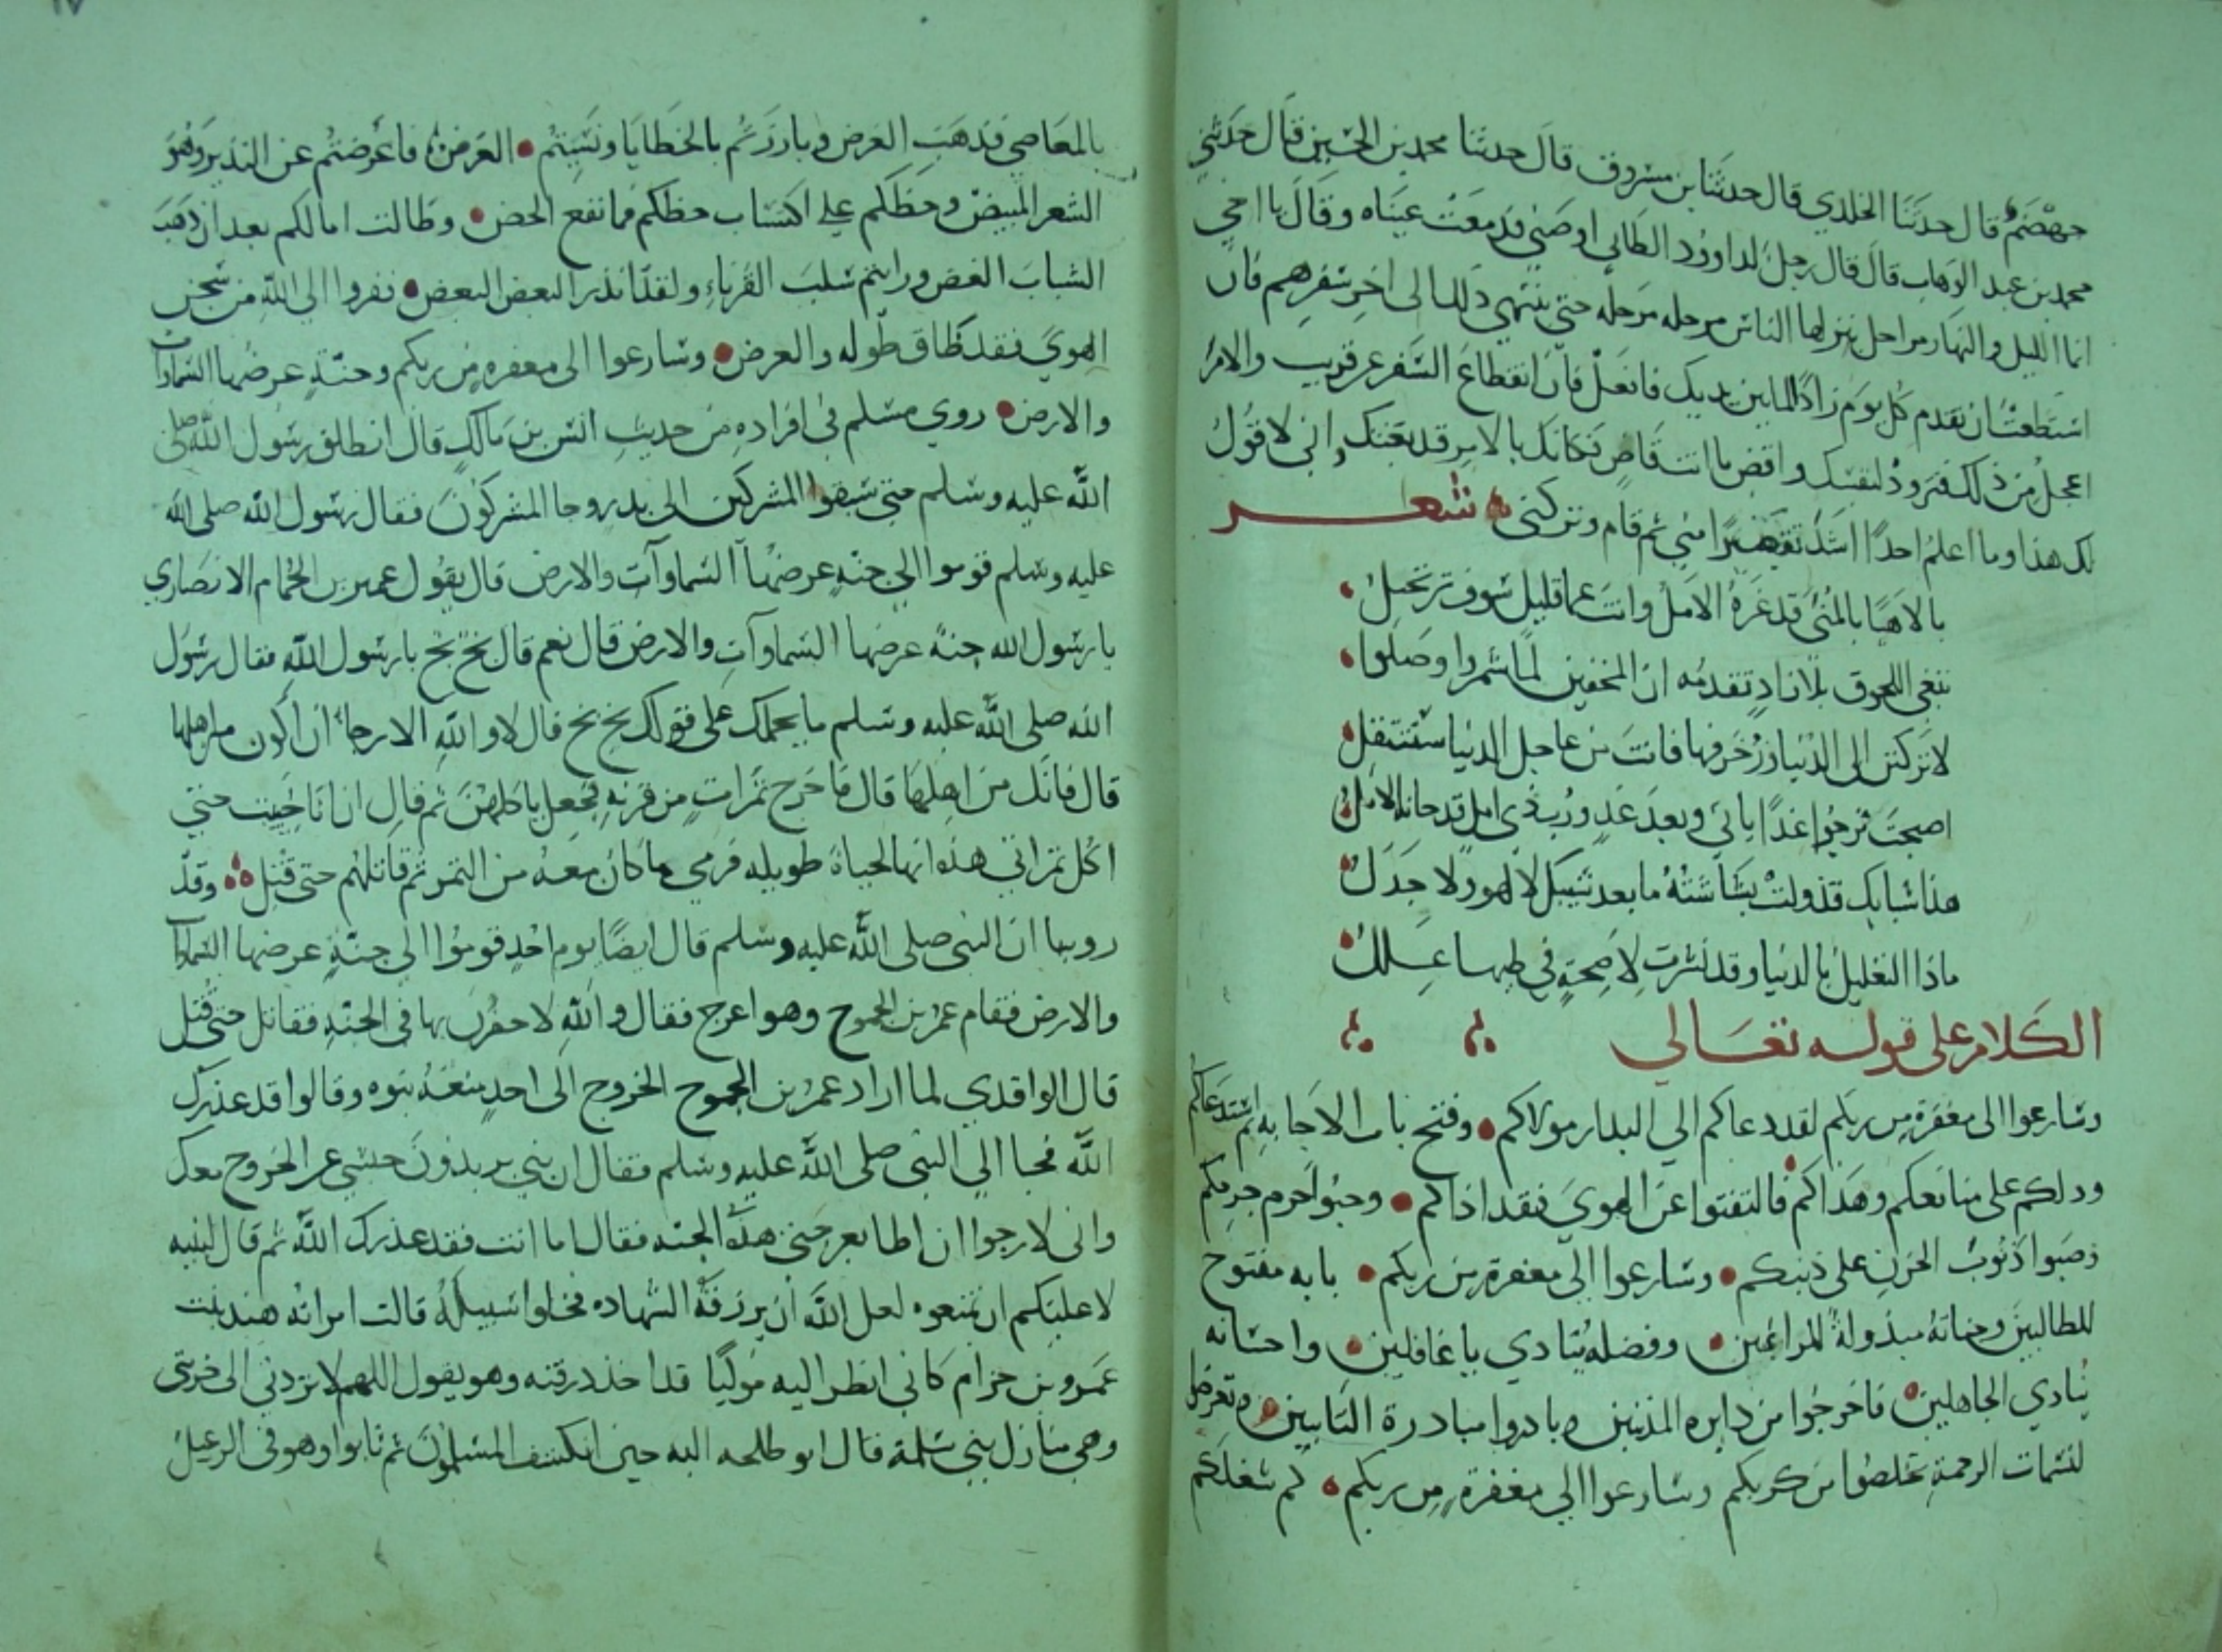 جهضم قال حدثنا الخلدي قال حدثنا بن مسروق قال حدثنا محمد بن الحسين قال حدثني
محمد بن عبد الوهاب قال قال رجل لداوود الطائي اوصني فدمعت عيناه وقال يا اخي
انما الليل والنهار مراحل ينزلها الناس مرحله مرحله حتى ينتهي ذلك الى اخر سفرهم فان
استطعت ان تقدم كل يوم زادًا لما بين يديك فافعل فان انقطاع السفر عن قريب والامر
اعجل من ذلك فتزود لنفسك واقض ما انت قاض فكانك بالامر قد بغتك واني لاقول
لك هذا وما اعلم احدًا اشد تقصيرًا مني ثم قام وتركني شعر
يا لاهيًا بالمنى قد غره الامل وانت عما قليل سوف ترتحل
تبغي اللحوق بلا زاد تقدمه ان المخفين لما شمروا وصلوا
لا تركنن الى الدنيا وزخرفها فانت من عاجل الدنيا ستنتقل
اصبحت ترجوا غدًا ياتي وبعد غد ورب ذي امل قد خانه الامل
هذا شبابك قد ولت بشاشته ما بعد شيبك لا لهو ولا جدل
ماذا التعليل بالدنيا وقد نشرت لا صحة في طيها علل
الكلام على قوله تعالى
وسارعوا الى مغفرة من ربكم لقد دعاكم الي البدار مولاكم وفتح باب الاجابه ثم استدعاكم
ودلكم على منافعكم وهداكم فالتفتوا عن الهوى فقد اذاكم وحثوا حزم جزمكم
وصبوا ذنوب الحزن على ذنبكم وسارعوا الى مغفرة من ربكم بابه مفتوح
للطالبين وجنابه مبذولة للراغبين وفضله ينادي يا غافلين واحسانه
ينادي الجاهلين فاخرجوا من دايره المذنبين وبادروا مبادرة التايبين وتعرضوا
لنسمات الرحمة تخلصوا من كربكم وسارعوا الى مغفرة من ربكم كم شغلكم
بالمعاصي فذهب الغرض وبارزتم بالخطايا ونسيتم العرض فاعرضتم عن النذير وهو
الشعر المبيض وحظكم على اكتساب حظكم فما نفع الحض وطالت امالكم بعد ان ذهب
الشباب الغض ورايتم سلب القرناء ولقد انذر البعض البعض ففروا الى الله من سجن
الهوى فقد ضاق طوله والعرض وسارعوا الى مغفره من ربكم وجنة عرضها السماوات
والارض روي مسلم في افراده من حديث انس بن مالك قال انطلق رسول الله صلى
الله عليه وسلم حتى سبقوا المشركين الى بدر وجا المشركون فقال رسول الله صلى الله
عليه وسلم قوموا الى جنة عرضها السماوات والارض قال يقول عمير بن الحمام الانصاري
يا رسول الله جنة عرضها السماوات والارض قال نعم قال بخ بخ يا رسول الله فقال رسول
الله صلى الله عليه وسلم ما يحملك على قولك بخ بخ قال لا والله الا رجاء ان اكون من اهلها
قال فانك من اهلها قال فاخرج تمرات من قرنه فجعل ياكلهن ثم قال ان انا حييت حتى
اكل تمراتي هذه انها لحياة طويله فرمى ما كان معه من التمر ثم قاتلهم حتى قتل وقد
روينا ان النبي صلى الله عليه وسلم قال ايضًا يوم احد قوموا الى جنة عرضها السماوات
والارض فقام عمر بن الجموح وهو اعرج فقال والله لاحفزن بها في الجنة فقاتل حتى قتل
قال الواقدي لما اراد عمر بن الجموح الخروج الى احد منعه بنوه وقالوا قد عذرك
الله فجا الي النبي صلى الله عليه وسلم فقال ان بني يريدون حبسي عن الخروج معك
واني لارجوا ان اطا بعرجتي هذه الجنه فقال اما انت فقد عذرك الله ثم قال لبنيه
لا عليكم ان تمنعوه لعل الله ان يرزقه الشهاده فخلوا سبيله قالت امراته هند بنت
عمرو بن حزام كاني انظر اليه موليًا قد اخذ درقته وهو يقول اللهم لا تردني الى خربتي
وهي منازل بني سلمة قال ابو طلحه اليه حين انكشف المسلمون ثم ثابوا وهو في الرعيل